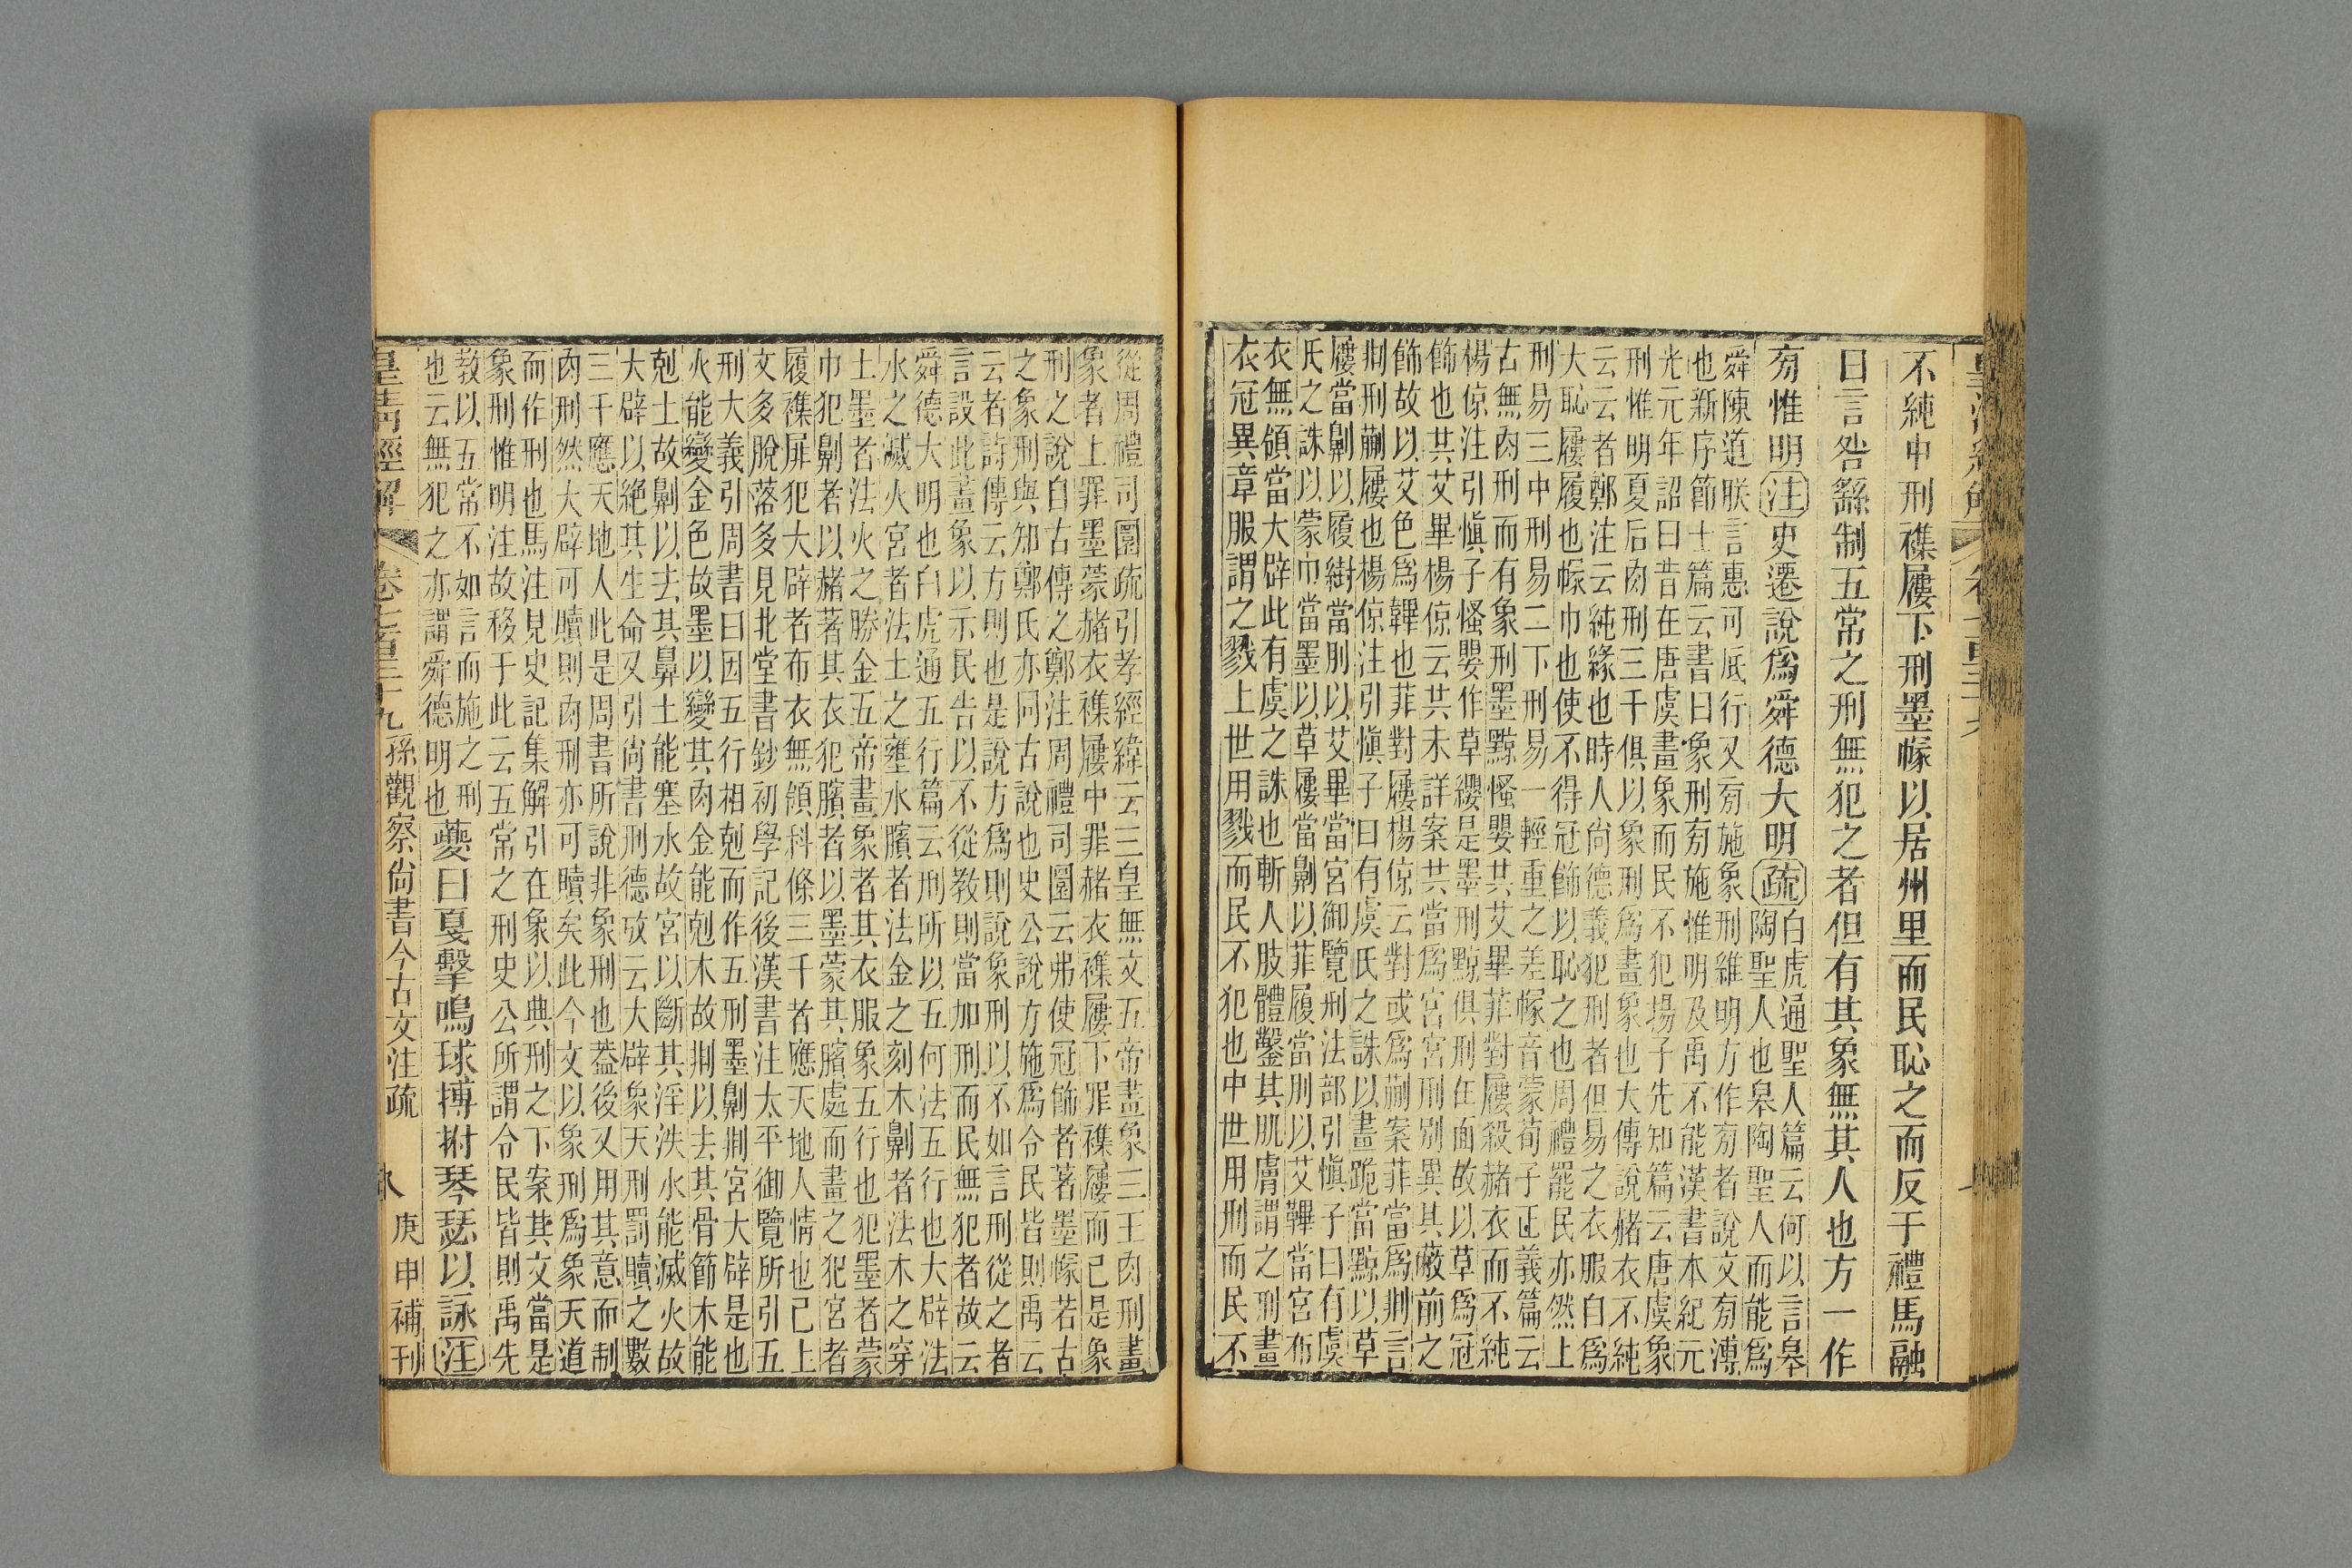 不純中刑襍屨下刑墨幪以居州里而民恥之而反于禮馬融
曰言咎繇制五常之刑無犯之者但有其象無其人也方一作
旉惟明注史遷說爲舜德大明疏
白虎通聖人篇云何以言皋
陶聖人也皋陶聖人而能爲
舜陳道朕言惠可厎行又旉施象刑維明方作旉者說文旉溥
也新序節士篇云書曰象刑旉施惟明及禹不能漢書本紀元
光元年詔曰昔在唐虞畫象而民不犯揚子先知篇云唐虞象
刑惟明夏后肉刑三千俱以象刑爲畫象也大傳說赭衣不純
云云者鄭注云純緣也時人尙德義犯刑者但易之衣服自爲
大恥屨履也幪巾也使不得冠飾以恥之也周禮罷民亦然上
刑易三中刑易二下刑易一輕重之差幪音蒙荀子正義篇云
古無肉刑而有象刑墨黥慅嬰共艾畢菲對屨殺赭衣而不純
楊倞注引愼子慅嬰作草纓是墨刑黥俱刑在面故以草爲冠
飾也其艾畢楊倞云共未詳案共當爲宮宮刑別異其蔽前之
飾故以艾色爲韠也菲對屨楊倞云對或爲蒯案菲當爲剕言
剕刑蒯屨也楊倞注引愼子曰有虞氏之誅以畫跪當黥以草
屨當劓以履䋙當刖以艾畢當宮御覽刑法部引愼子曰有虞
氏之誅以蒙巾當墨以草屨當劓以菲履當刖以艾韠當宮布
衣無領當大辟此有虞之誅也斬人肢體鑿其肌膚謂之刑畫
衣冠異章服謂之戮上世用戮而民不犯也中世用刑而民不
從周禮司圜疏引孝經緯云三皇無文五帝畫象三王肉刑畫
象者上罪墨蒙赭衣襍屨中罪赭衣襍屨下罪襍屨而已是象
刑之說自古傳之鄭注周禮司圜云弗使冠飾者著墨幪若古
之象刑與知鄭氏亦同古說也史公說方施爲令民皆則禹云
云者詩傳云方則也是說方爲則說象刑以不如言刑從之者
言設此畫象以示民告以不從教則當加刑而民無犯者故云
舜德大明也白虎通五行篇云刑所以五何法五行也大辟法
水之滅火宮者法土之壅水臏者法金之刻木劓者法木之穿
土墨者法火之勝金五帝畫象者其衣服象五行也犯墨者蒙
巾犯劓者以赭著其衣犯臏者以墨蒙其臏處而畫之犯宮者
履襍屝犯大辟者布衣無領科條三千者應天地人情也已上
文多脫落多見北堂書鈔初學記後漢書注太平御覽所引五
刑大義引周書曰因五行相剋而作五刑墨劓剕宮大辟是也
火能變金色故墨以變其肉金能剋木故剕以去其骨節木能
剋土故劓以去其鼻土能塞水故宮以斷其淫泆水能滅火故
大辟以絕其生命又引尙書刑德攷云大辟象天刑罰贖之數
三千應天地人此是周書所說非象刑也蓋後又用其意而制
肉刑然大辟可贖則肉刑亦可贖矣此今文以象刑爲象天道
而作刑也馬注見史記集解引在象以典刑之下案其文當是
象刑惟明注故移于此云五常之刑史公所謂令民皆則禹先
教以五常不如言而施之刑
也云無犯之亦謂舜德明也夔曰戛擊鳴球搏拊琴瑟以詠注
皇淸經解 卷七百三十九 孫觀察尙書今古文注疏 八 庚申補刊